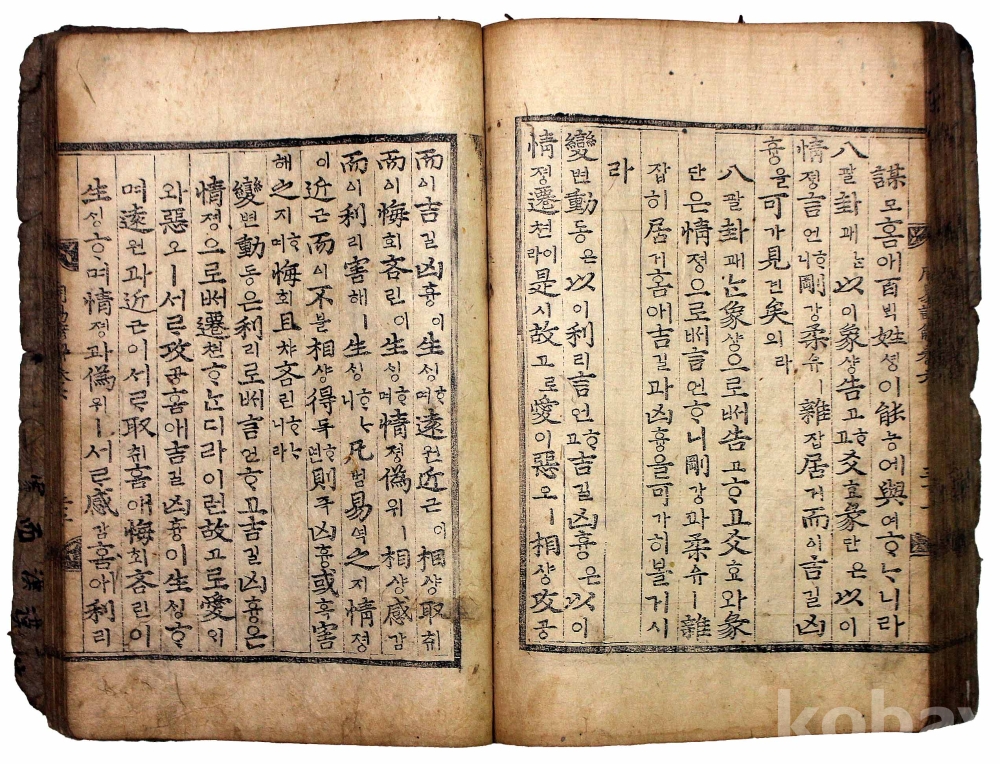 謀모홈애百ᄇᆡᆨ姓셩이能능에與여ᄒᆞᄂᆞ니라
八팔卦괘ᄂᆞᆫ以이象샹告고ᄒᆞ고爻효彖단은以이
情졍言언ᄒᆞ니剛강柔유ㅣ雜잡居거而이吉길凶
흉을可가見견矣의라
八팔卦괘ᄂᆞᆫ象샹으로ᄡᅥ告고ᄒᆞ고爻효와彖
단은情졍으로ᄡᅥ言언ᄒᆞ니剛강과柔유ㅣ雜
잡히居거홈애吉길과凶흉을可가히볼거시
라
變변動동은以이利리言언ᄒᆞ고吉길凶흉은以이
情졍遷쳔이라是시故고로愛이惡오ㅣ相샹攻공
而이吉길凶흉이生ᄉᆡᆼᄒᆞ며遠원近근이相샹取취
而이悔회吝린이生ᄉᆡᆼᄒᆞ며情졍僞위ㅣ相샹感감
而이利리害해ㅣ生ᄉᆡᆼᄒᆞᄂᆞ니凡범易역之지情졍
이近근而이不블相샹得득ᄒᆞ면則즉凶흉ᄒᆞ며或혹害
해之지ᄒᆞ며悔회且챠吝린ᄒᆞᄂᆞ니라
變변動동은利리로ᄡᅥ言언ᄒᆞ고吉길凶흉은
情졍으로ᄡᅥ遷쳔ᄒᆞᄂᆞᆫ디라이런故고로愛ᄋᆡ
와惡오ㅣ서ᄅᆞ攻공홈애吉길凶흉이生ᄉᆡᆼᄒᆞ
며遠원과近근이서ᄅᆞ取취홈애悔회吝린이
生ᄉᆡᆼᄒᆞ며情졍과僞위ㅣ서ᄅᆞ感감홈애利리
kobay